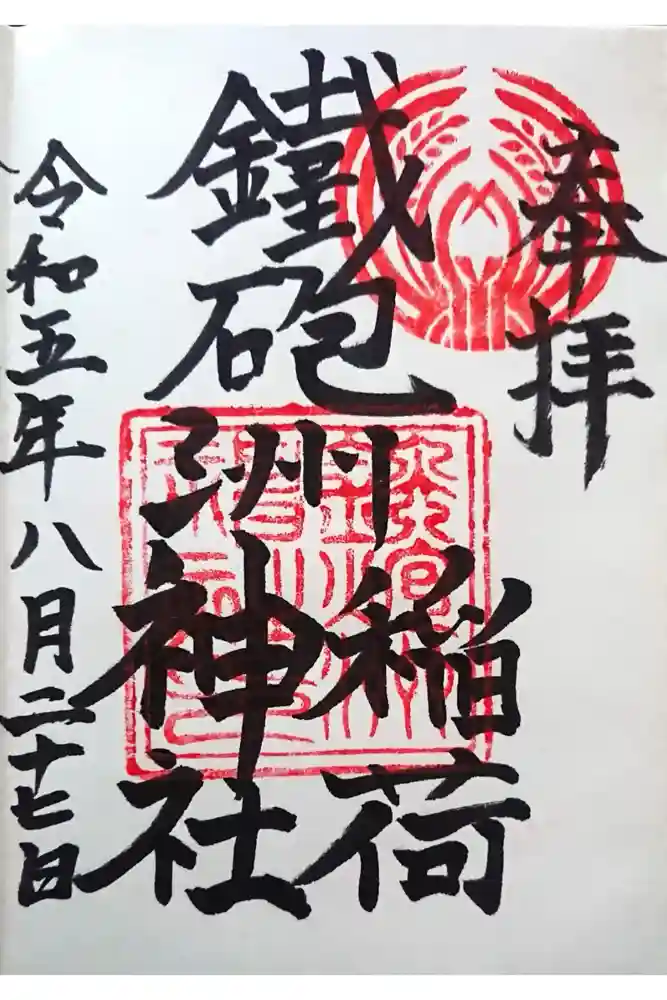 奉拝
鐵砲洲
稲荷
神社
令和五年八月二十七日